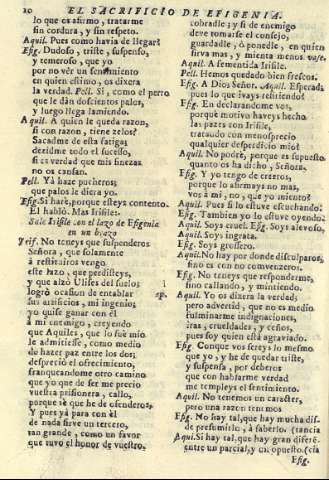 20 EL SACRIFICIO DE EFIGENIA.
lo que os afirmo, tratarme
sin cordura, y sin respeto.
Aquil. Pues como havia de llegar?
Efig. Dudoso, triste, suspenso,
y temeroso, que yo
por no vèr un sentimiento
en quien estimo, os dixera
la verdad. Pell. Si, como el perro
que le dàn doscientos palos,
y luego llega lamiendo.
Aquil. A quien le queda razon,
si con razon, tiene zelos?
Sacadme de esta fatiga;
decidme todo el sucesso,
si es verdad que mis finezas
no os cansan.
Pell. Yà haze pucheros;
que palos le diera yo.
Efig. Si harè, porque esteys contento.
El hablò. Mas Irifile:
Sale Irifile con el lazo de Efigenia
en un brazo
Irif. No teneys que suspenderos
Señora, que solamente
à restituiros vengo
este lazo, que perdisteys,
y que alzò Ulises del suelo;
logrò ocasion de entablar
sus artificios, mi ingenio;
yo quise ganar con èl
à mi enemigo, creyendo
que Aquiles, que lo fuè mio
le admitiesse, como medio
de hazer paz entre los dos;
despreciò el ofrecimiento,
franqueandome otro camino
que yo que de ser me precio
vuestra prisionera, callo,
porque sè que he de ofenderos;
Y pues yà para con èl
de nada sirve un tercero,
tan grande, como un favor
que tuvo el honor de vuestro,
cobradle; y si de enemigo
deve tomarse el consejo,
guardadle, ò ponedle, en quien
firva mas, y mienta menos vase.
Aquil. A sementida Irifile.
Pell. Hemos quedado bien frescos.
Efig. A Dios Señor. Aquil. Esperad;
pues lo que ivays refiriendo?
Efig. En declarandome vos,
porquè motivo haveys hecho
las pazes con Irifile,
tratando con menosprecio
qualquier desperdicio mio?
Aquil. No podrè, porque es supuesto
quanto os ha dicho, Señora.
Efig. Y yo tengo de creeros,
porque lo afirmays no mas,
vos à mì, no, què yo miento?
Aquil. Pues si lo estuve escuchando?
Efig. Tambien yo lo estuve oyendo:
Aquil. Soys cruel. Efig. Soys alevoso,
Aquil. Soys ingrata.
Efig. Soys grossero.
Aquil. No hay por donde disculparos,
sino es con no convenceros.
Efig. No teneys que responderme,
sino callando, y mintiendo.
Aquil. Yo os dixera la verdad;
pero advertid, que no es medio
fulminarme indignaciones,
iras, crueldades, y ceños,
pues soy quien està agraviado.
Efig. Conque vos sereys lo mesmo
que yo, y he de quedar triste,
y suspensa, por deberos
que con hablarme verdad
me templeys el sentimiento.
Aquil. No tenemos un caracter,
pero una razon tenemos
Efig. No hay tal, que hay mucha dis-
de presumirlo, à saberlo. (tancia
Aqui. Si hay tal, que hay gran diferè-
entre un parcial, y un opuesto. (cia
Efig.